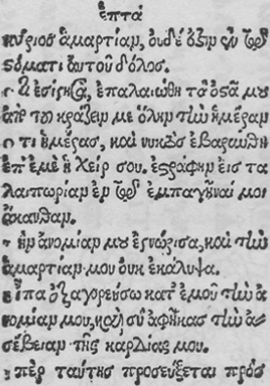 ἑπτά
κύριος ἁμαρτίαν, οὐδέ ἐςιν ἐν τῷ
ςόματι αὐτοῦ δόλος.
ὅτι ἐσίγησα, ἐπαλαιώθη τὰ ὀςᾶ μου
ἀπὸ τοῦ κράζειν με ὅλην τὴν ἡμέραν
ὅτι ἡμέρας, καὶ νυκτὸς ἐβαρύνθη
ἐπ' ἐμὲ ἡ χείρ σου. ἐςράφην εἰς τα
λαιπωρίαν ἐν τῷ ἐμπαγῆναί μοι
ἄκανθαν.
τὴν ἀνομίαν μου ἐγνώρισα, καὶ τὴν
ἁμαρτίαν μου οὐκ ἐκάλυψα.
εἶπα ἐξαγορεύσω κατ' ἐμοῦ τὴν ἀ
νομίαν μου, καὶ σὺ ἀφῆκας τὴν ἀ
σέβειαν τῆς καρδίας μου.
ὑπὲρ ταύτης προσεύξεται πρός